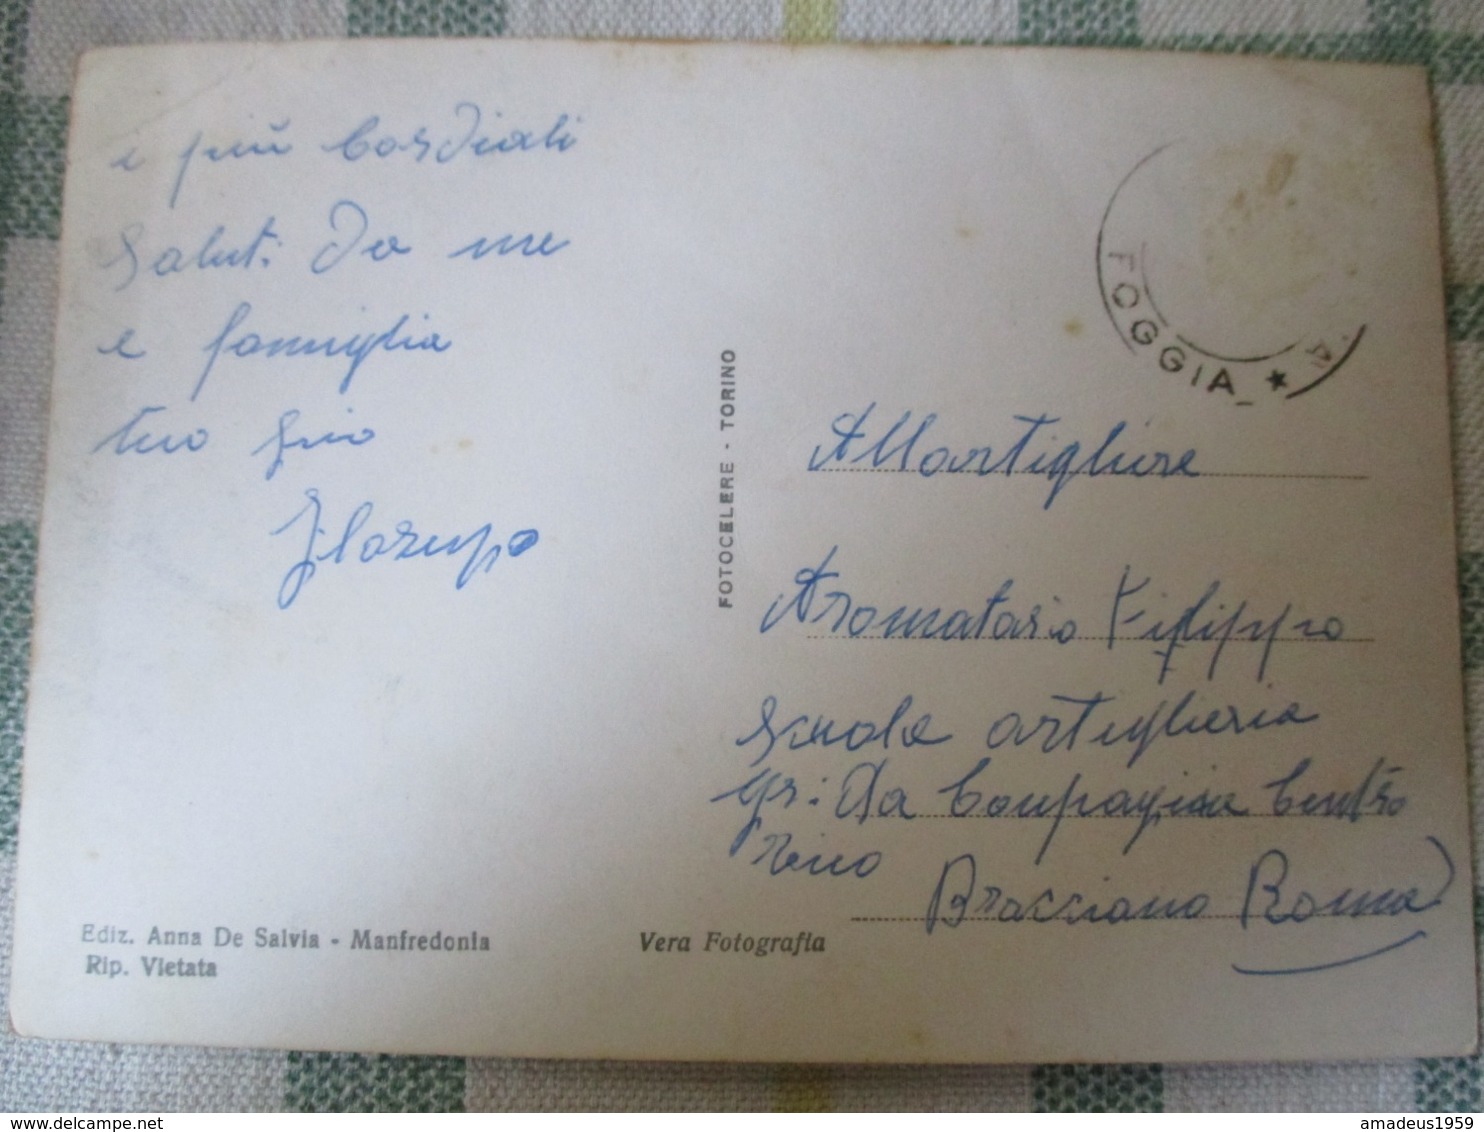 i più Cordiali
Saluti Da me
e famiglia
tuo
FOGGIA
FOTOCELERE - TORINO
All artigliere
Aromatario Filippo
Scuola artiglieria
Compagnia Centro
Bracciano Roma
Ediz. Anna De Salvia - Manfredonia
Rip. Vietata
Vera Fotografia
delcampe.net
amadeus1959